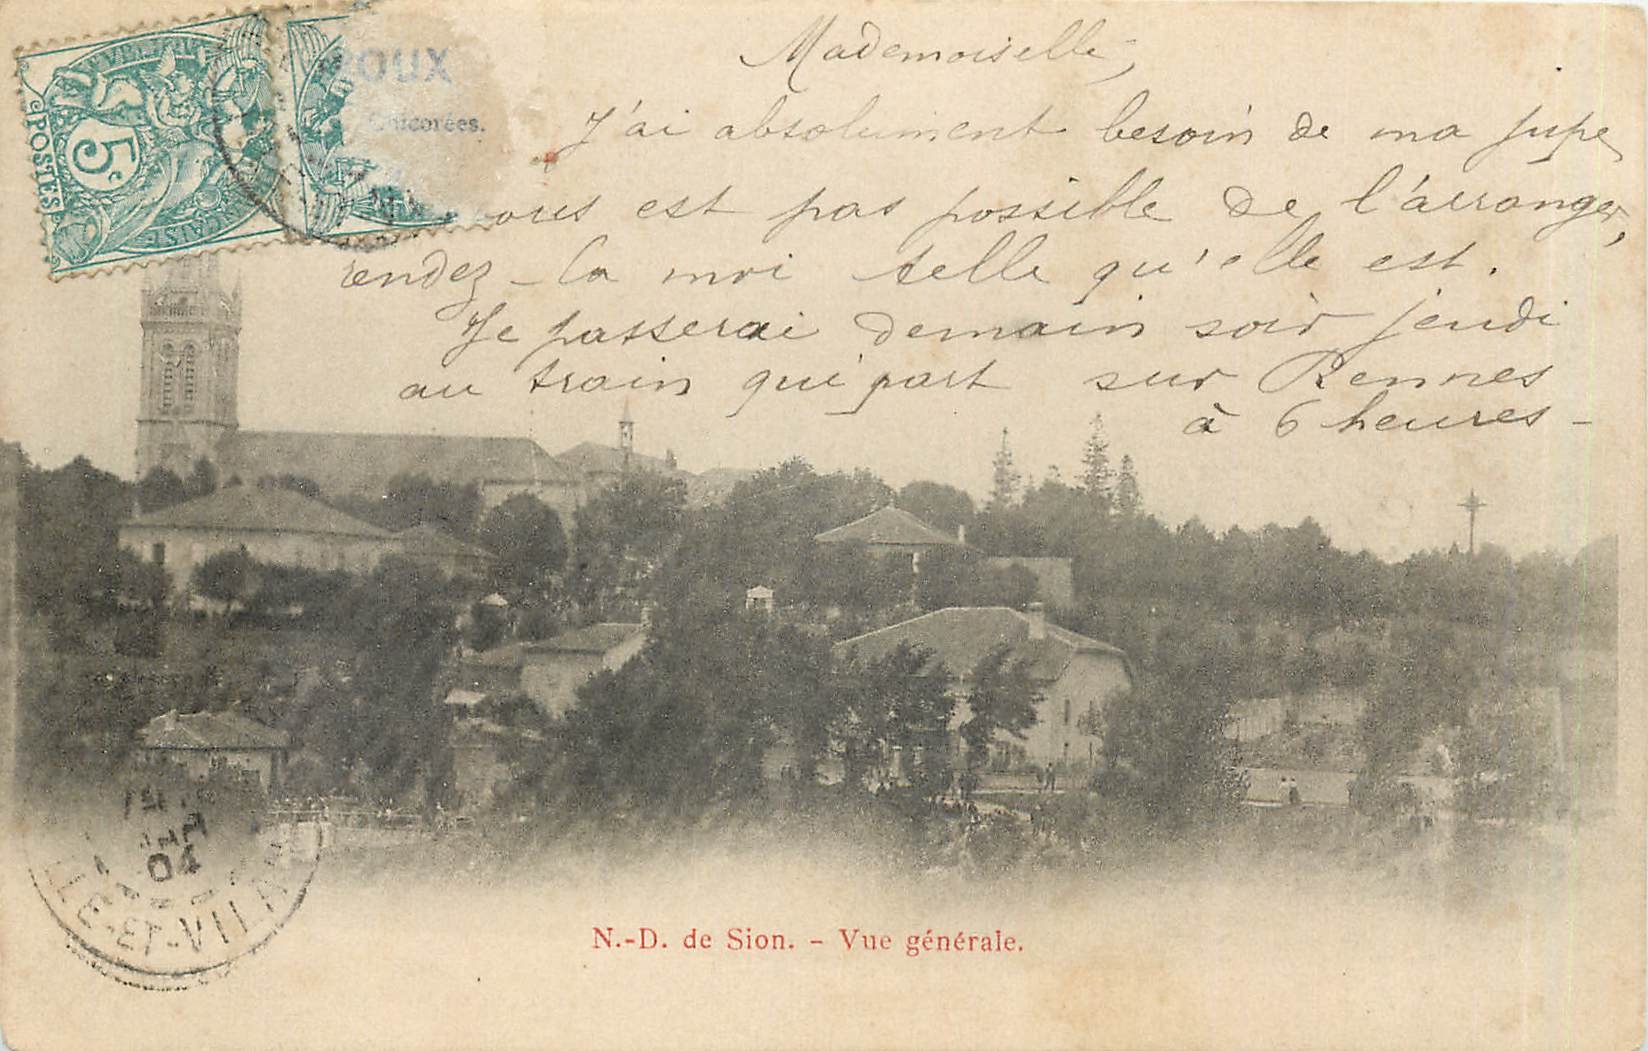 Mademoiselle,
J'ai absolument besoin de ma jupe,
ous est pas possible de l'arranger,
rendez-la moi telle qu'elle est.
Je passerai demain soir jeudi
au train qui part sur Rennes
à 6 heures -
POSTES
5c
ÇAISE
ROUX
Chicorées.
15
04
ILLE-ET-VILAINE
N.-D. de Sion. - Vue générale.